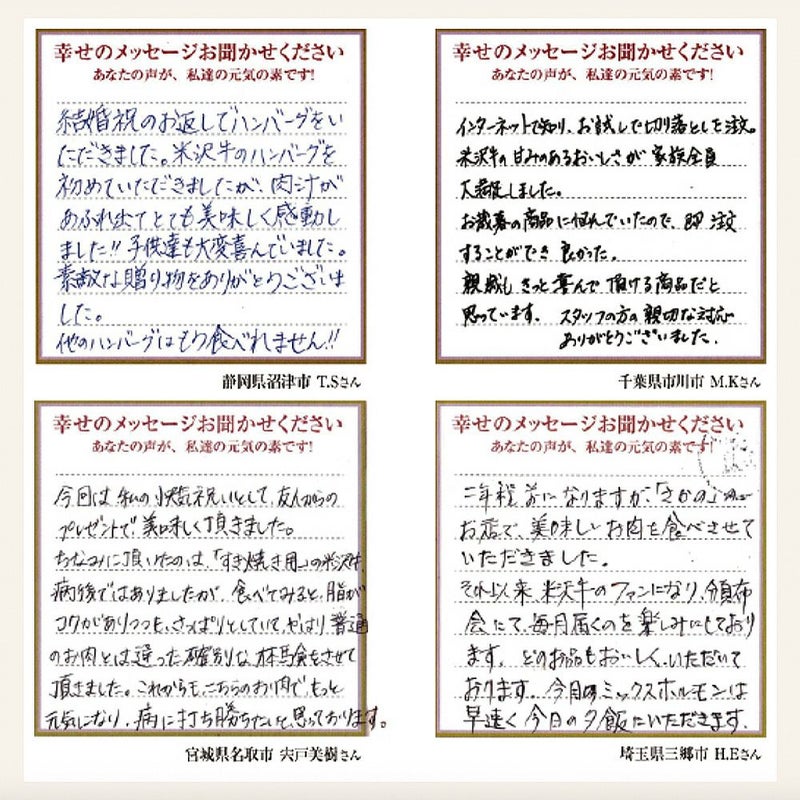 幸せのメッセージお聞かせください
あなたの声が、私達の元気の素です!
結婚祝のお返しでハンバーグをい
ただきました。米沢牛のハンバーグを
初めていただきましたが、肉汁が
あふれ出てとても美味しく感動し
ました!! 子供達も大変喜んでいました。
素敵な贈り物をありがとうございま
した。
他のハンバーグはもう食べれません!!
静岡県沼津市 T.Sさん
幸せのメッセージお聞かせください
あなたの声が、私達の元気の素です!
インターネットで知り、お試しで切り落としを注文。
米沢牛の甘みのあるおいしさが家族全員
大満足しました。
お歳暮の商品に悩んでいたので、即注文
することができ良かった。
親戚もきっと喜んで頂ける商品だと
思っています。スタッフの方の親切な対応
ありがとうございました。
千葉県市川市 M.Kさん
幸せのメッセージお聞かせください
あなたの声が、私達の元気の素です!
今回は私の病気祝いとして、友人からの
プレゼントで美味しく頂きました。
ちなみに頂いたのは、「すき焼き用」の米沢牛、
病後ではありましたが、食べてみると、脂が
コクがありつつも、さっぱりとしていて、やはり普通
のお肉とは違った格別な体験をさせて
頂きました。これからも、こちらのお肉で、もっと
元気になり、病に打ち勝ちたいと思っております。
宮城県名取市 宍戸美樹さん
幸せのメッセージお聞かせください
あなたの声が、私達の元気の素です!
二年程前になりますが、「さかの」
お店で、美味しいお肉を食べさせて
いただきました。
それ以来 米沢牛のファンになり、今頒布
会にて、毎月届くのを楽しみにしており
ます。どのお品もおいしくいただいて
おります。今月のミックスホルモンは
早速く今日の夕飯にいただきます。
埼玉県三郷市 H.Eさん